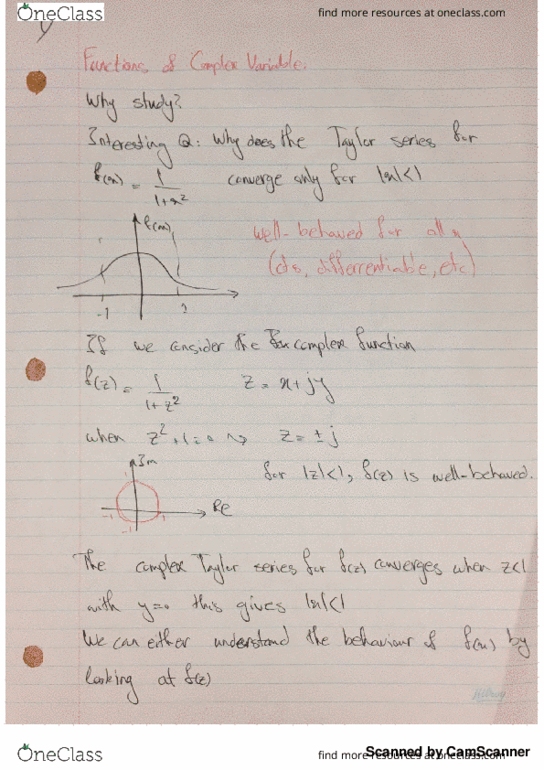 OneClass
find more resources at oneclass.com
Functions of Complex Variable.
Why study?
Interesting Q: Why does the Taylor series for
f(x) = 1/(1+x²) converge only for |x|<1
f(x)
well-behaved for all x
(cts, differentiable, etc)
-1
If we consider the complex function
f(z) = 1/(1+z²) z = x+jy
when z²+1=0 ⇝ z=±j
Im
for |z|<1, f(z) is well-behaved.
Re
The complex Taylor series for f(z) converges when z<1
with y=0 this gives |x|<1
We can either understand the behaviour of f(x) by
looking at f(z)
Hilroy
OneClass
find more resources at oneclass.com
Scanned by CamScanner